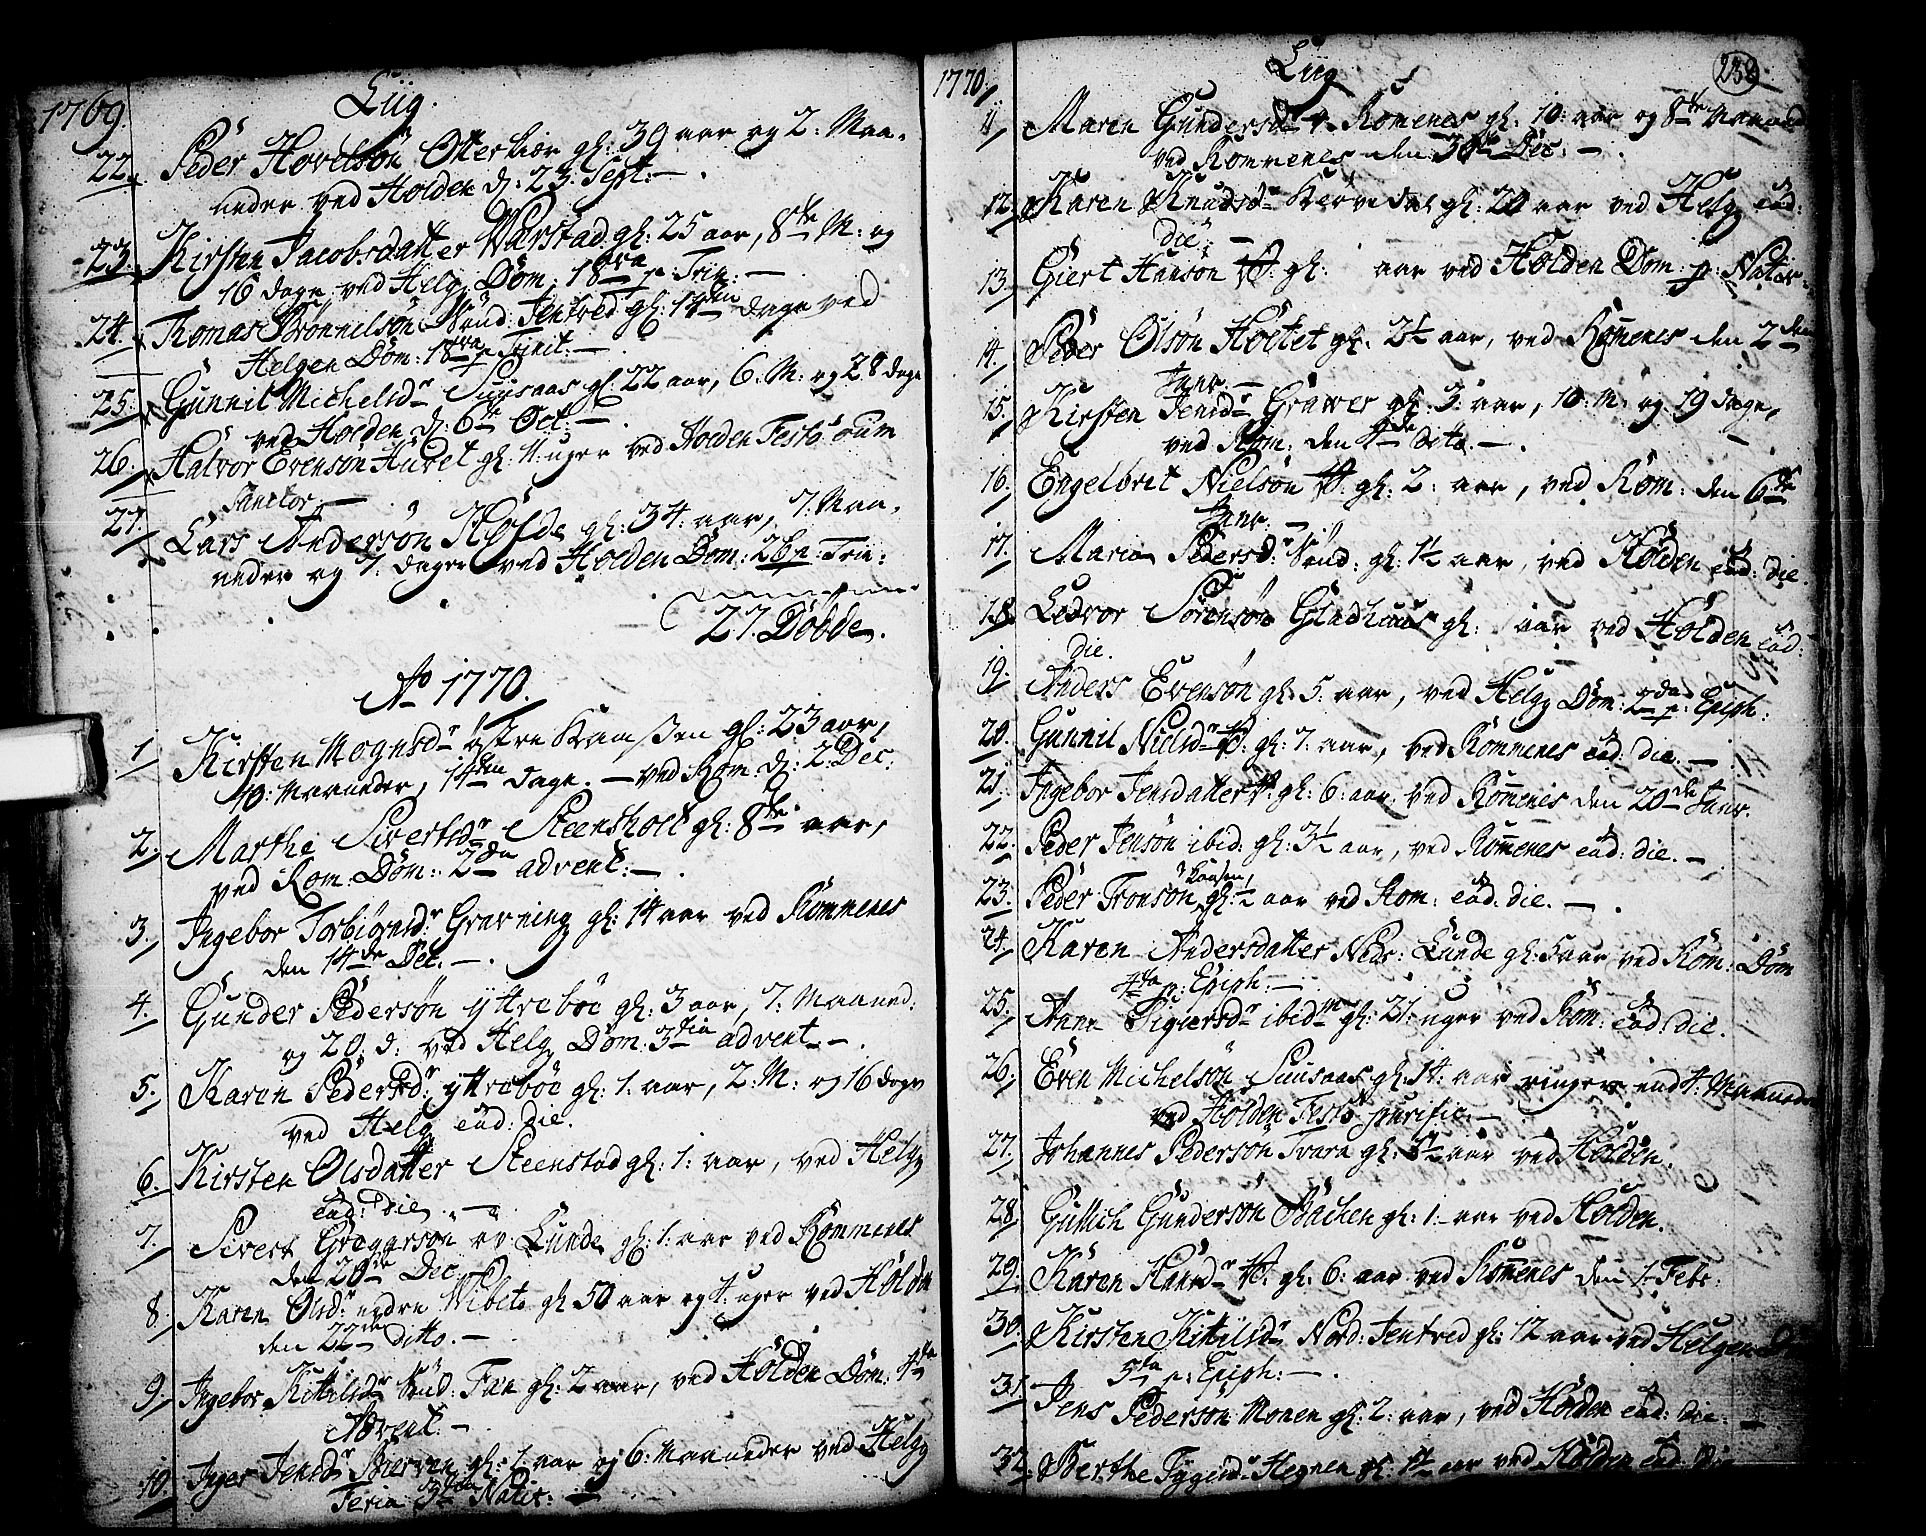 1769.
Liig.
22. Peder Hovelsøn Otterkiær gl: 39 aar og 2: Maa-
neder ved Holden d: 23. Sept: —.
23. Kirsten Jacobsdatter Warstad gl: 25 aar, 8te M: og
16 dage ved Helg: Dom: 18va p: Trin: —
24. Thomas Brønnelsøn Sønd: Jentved gl: 14ten dage ved
Helgen Dom: 18va p Trinit: —
25. Gunnil Michelsdr Suusaas gl: 22 aar, 6: M: og 28 dage
ved Holden d: 6te Oct: —.
26. Halvor Evensøn Huset gl: 4: uger ved Holden Festo oum
Sanctor: —
27. Lars Andersøn Holde gl: 34: aar, 7: Maa-
neder og 7: dage ved Holden Dom: 26 p: Trin:
27. Døbde.
Ao 1770.
1. Kirsten Mognsdr østre Kamssen gl: 23 aar,
10: Maaneder, 14ten dage. — ved Rom: d: 2: Dec:
2. Marthe Sivertsdr Steensholt gl: 8te aar,
ved Rom: Dom: 2da advent: —.
3. Ingebor Torbiørnsdr Gravning gl: 14 aar ved Rommenes
den 14de Dec. —.
4. Gunder Pedersøn yttrebøe gl: 3 aar, 7: Maaned:
og 20. d: ved Helg: Dom: 3tia advent. —.
5. Karen Pedersdr yttrebøe gl: 1. aar, 2: M: og 16 dage
ved Helg: ead: die.
6. Kirsten Olsdatter Steenstad gl: 1: aar, ved Helg:
ead: die. —
7. Sivert Greggersøn øv: Lunde gl: 1: aar ved Rommenes
den 20de Dec: —
8. Karen Olsdr nedre Wibeto gl: 50 aar og 4: uger ved Holden
den 22de ditto. —
9. Ingebor Kittilsdr Sønd: Fæn gl: 2 aar, ved Holden Dom: 4ta
Advent. —
10. Inger Jensdr gl: 1. aar og 6. Maaneder ved Helg:
Feria 3tia Natit: —
1770.
Liig
238.
11. Maren Gundersdr Romenes gl: 10: aar og 8te Maaned
ved Rommenes den 30te Dec: —.
12. Karen Knudsdr gl: 20 aar ved Helg: ead:
die: —
13. Giert Hansøn gl: aar ved Holden Dom: p: Nativ:
14. Peder Olsøn Holtet gl: 2½ aar, ved Romenes den 2den
Janr. —
15. Kirsten Jensdr Grawer gl: 3: aar, 10: M: og 19 dage,
ved Rom: den 4de ditto. —.
16. Engelbret Nielsøn gl: 2: aar, ved Rom: den 6te
Janr: —
17. Maria Pedersdr Sønd: gl: 1½ aar, ved Holden ead: die.
18. Ledvor Sørensøn Gladhuus gl: aar ved Holden ead:
die.
19. Anders Evensøn gl: 5: aar, ved Helg: Dom: 2da p: Epiph:
20. Gunnil Nielsdr gl: 7: aar, ved Rommenes ead: die. —
21. Ingebor Jensdatter gl: 6: aar: ved Romenes den 20de Janr.
22. Peder Jensøn ibid: gl: 3½ aar, ved Romenes ead: die. —
23. Peder Tronsøn Kaasen, gl: ½ aar ved Rom: ead: die. —.
24. Karen Andersdatter Nedr: Lunde gl: aar ved Rom: Dom
4ta p: Epiph: —
25. Anne Sigersdr ibidm gl: 21: uger ved Rom: ead: die.
26. Even Michelsøn Suusaas gl: 14: aar ringere end 4: Maaneder
ved Holden Festo purific: —
27. Johannes Pedersøn Tvara gl: aar ved Holden.
28. Gullich Gundersøn Bachen gl: 1: aar ved Holden.
29. Karen Hansdr gl: 6: aar ved Romenes den 1. Febr:
30. Kirsten Kittilsdr Nord: Jentved gl: 12 aar ved Helgen
5ta p: Epiph: —.
31. Jens Pedersøn Monen gl: 2: aar, ved Holden ead: die: —
32. Berthe Tygesdr Hegnen gl: 1½ aar ved Holden ead: die